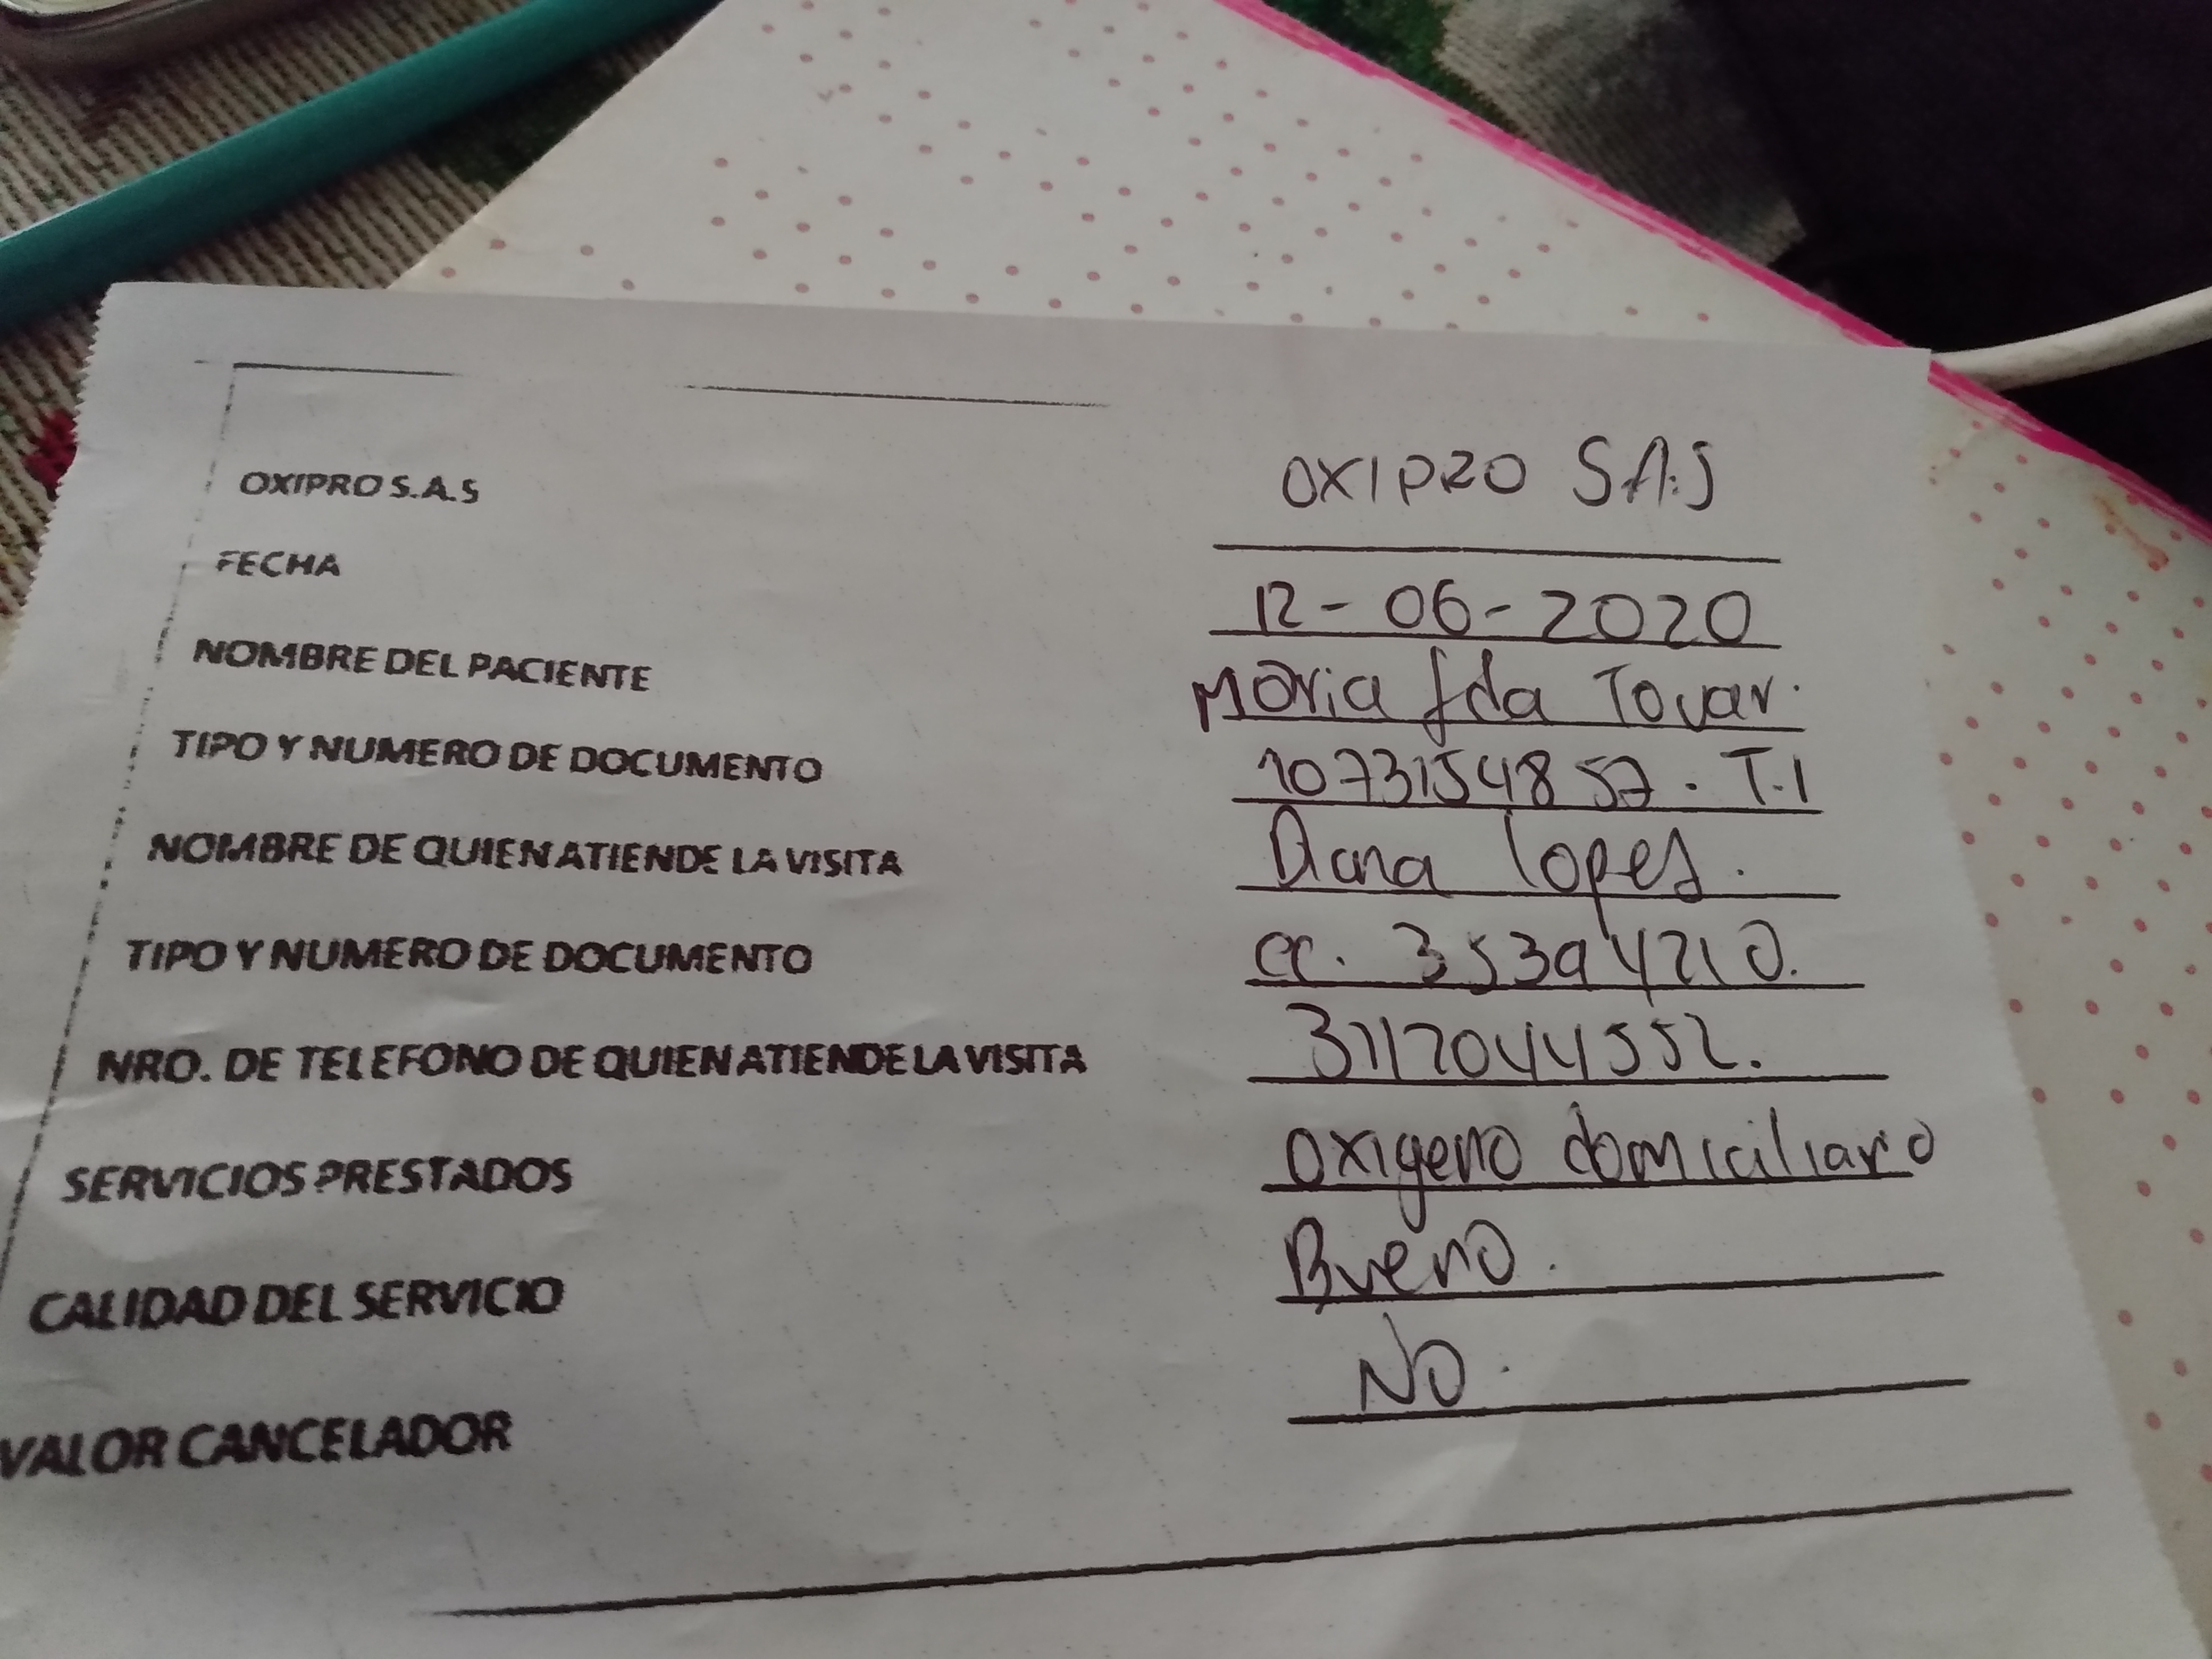 OXIPRO S.A.S OXIPRO SAS
FECHA 12-06-2020
NOMBRE DEL PACIENTE Maria fda Tovar.
TIPO Y NUMERO DE DOCUMENTO 1073154857. T.I
NOMBRE DE QUIEN ATIENDE LA VISITA Diana lopes.
TIPO Y NUMERO DE DOCUMENTO cc. 35394210.
NRO. DE TELEFONO DE QUIEN ATIENDE LA VISITA 3117044552.
SERVICIOS PRESTADOS oxigeno domiciliario
CALIDAD DEL SERVICIO Bueno.
VALOR CANCELADOR NO.